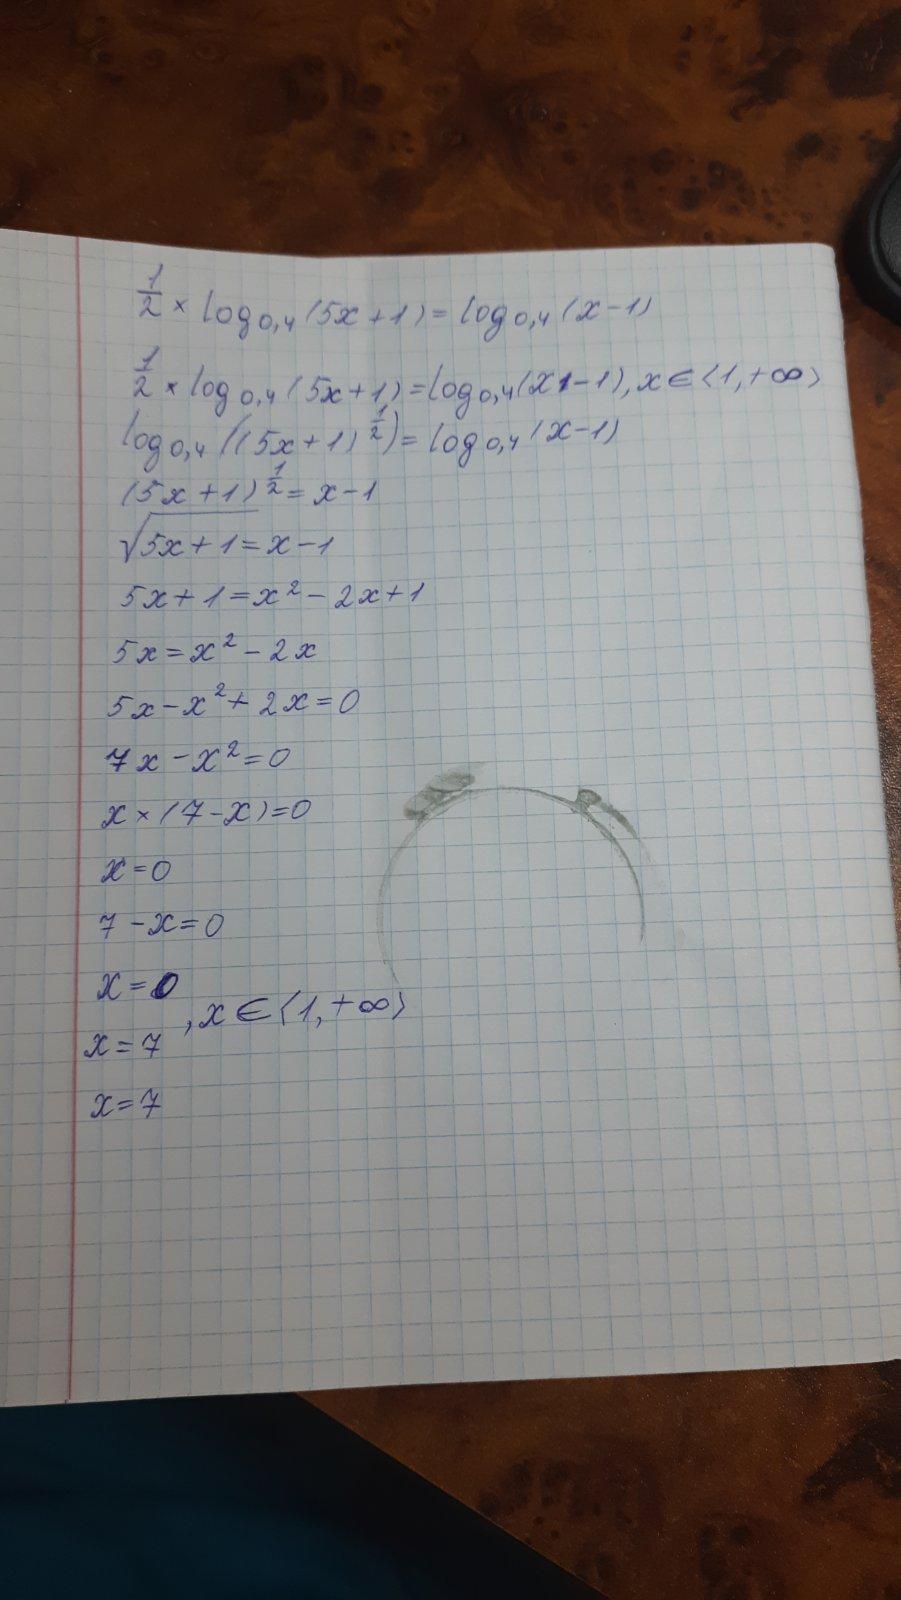 1/2 × log₀,₄ (5x+1) = log₀,₄ (x-1)
1/2 × log₀,₄ (5x+1) = log₀,₄ (x-1), x ∈ ⟨1,+∞⟩
log₀,₄ ((5x+1)^1/2) = log₀,₄ (x-1)
(5x+1)^1/2 = x-1
√5x+1 = x-1
5x+1 = x²-2x+1
5x = x²-2x
5x-x²+2x=0
7x-x²=0
x×(7-x)=0
x=0
7-x=0
x=0
, x ∈ ⟨1,+∞⟩
x=7
x=7